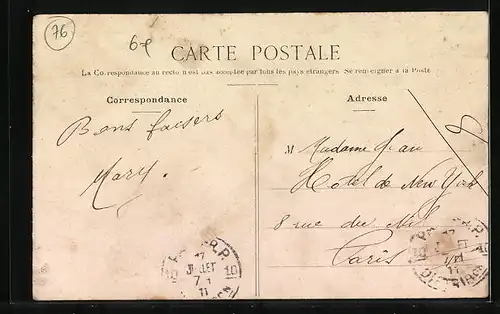 76
6 f
CARTE POSTALE
La Correspondance au recto n'est pas acceptée par tous les pays étrangers. Se renseigner à la Poste
Correspondance
Adresse
Bons baisers
Mary.
M Madame Jean
Hotel de New York
8 rue du Nil
Paris
17
JUILLET
10 10
7
11
DISTRIBUTION